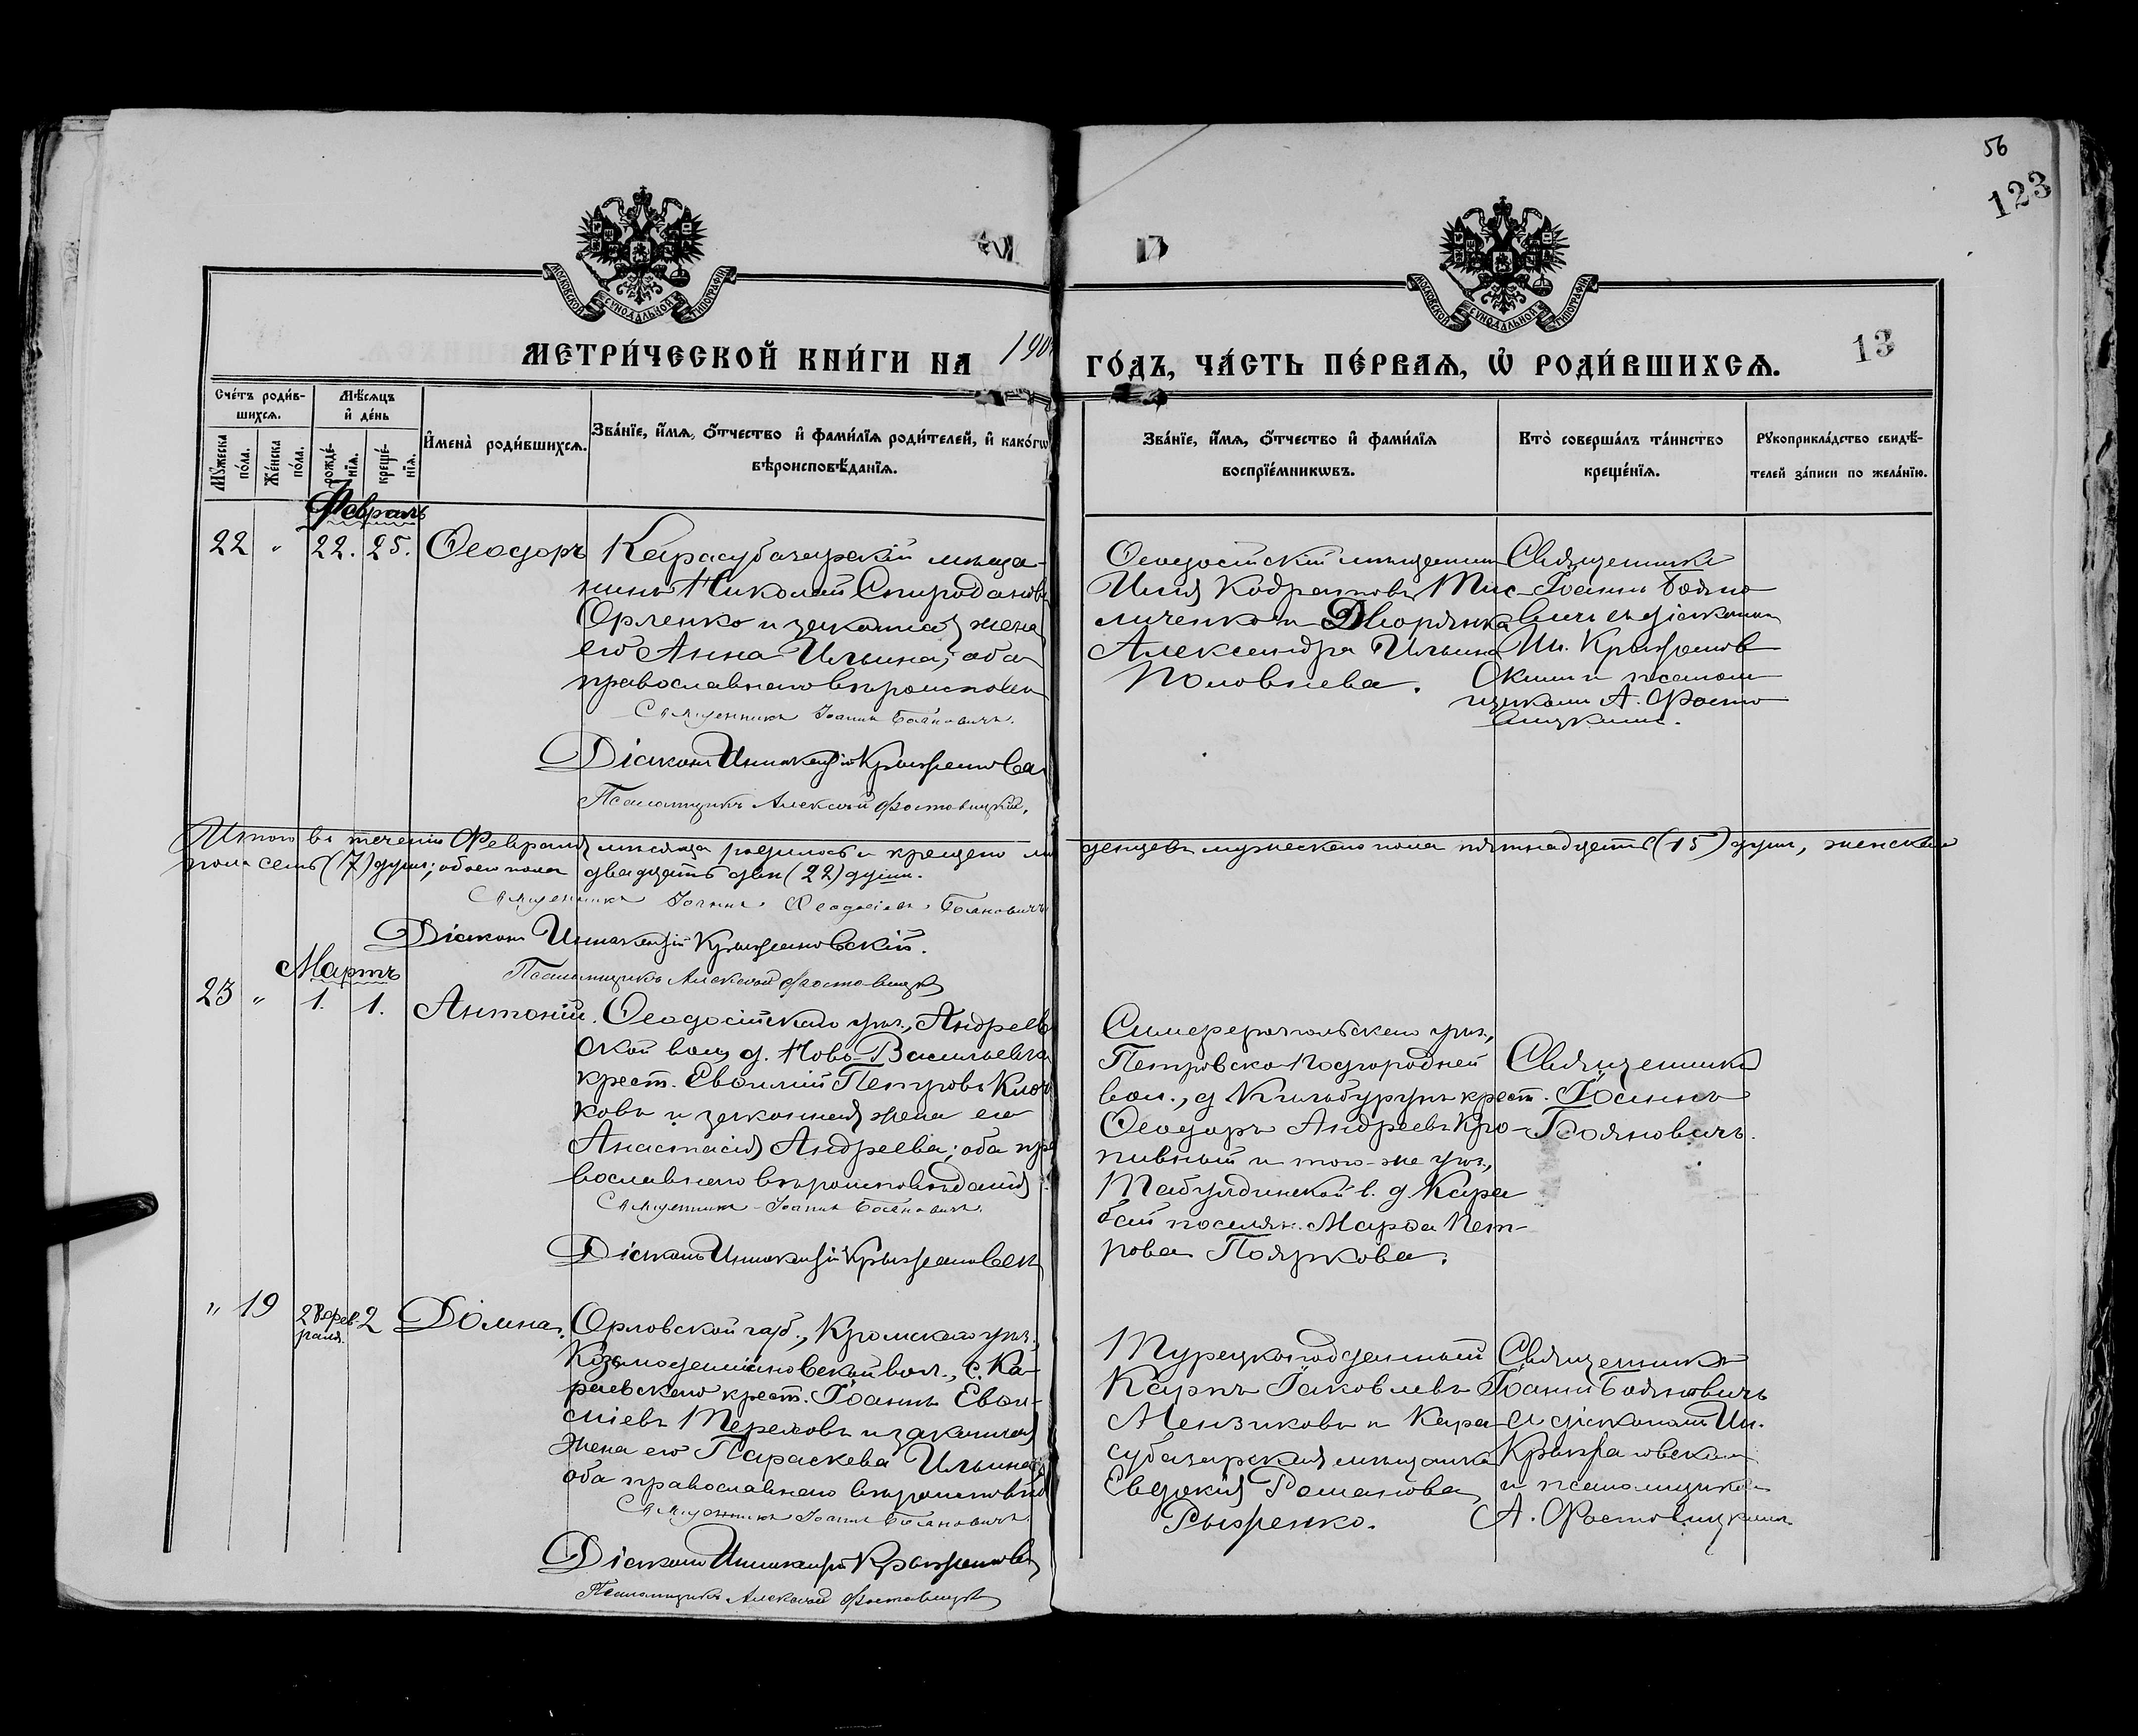 56
123
МОСКОВСКОЙ СУНОДАЛЬНОЙ ТИПОГРАФІИ
МОСКОВСКОЙ СУНОДАЛЬНОЙ ТИПОГРАФІИ
МЕТРИ́ЧЕСКОЙ КНИ́ГИ НА 190
ГО́ДЪ, ЧА́СТЬ ПЕ́РВАѦ, Ѡ РОДИ́ВШИХСѦ.
13
Сче́тъ роди́в-
шихсѧ.
Мѣ́сѧцъ
и҆ де́нь
Мꙋ́жеска по́ла.
Же́нска по́ла.
рожде́-нїѧ.
креще́-нїѧ.
И҆мена̀ роди́вшихсѧ.
Зва́нїе, и҆́мѧ, ѻ҆́тчество и҆ фами́лїѧ роди́телей, и҆ како́гѡ
вѣроисповѣ́данїѧ.
Зва́нїе, и҆́мѧ, ѻ҆́тчество и҆ фами́лїѧ
воспрїе́мникѡвъ.
Кто̀ соверша́лъ та́инство
креще́нїѧ.
Рꙋкоприкла́дство свидѣ́-
телей за́писи по жела́нїю.
Февраль
22 " 22. 25. Ѳеодоръ
Карасубазарскій мѣща-
нинъ Николай Спиридоновъ
Орленко и законная жена
его Анна Ильина; оба
православнаго вѣроисповѣ
Священникъ Іоаннъ Бояновичъ.
Діаконъ Иннокентій Крыжановск
Псаломщикъ Алексѣй Фостовицкій.
Ѳеодосійскій мѣщанинъ
Илія Кодратовъ Тис-
личенко и Дворянка
Александра Ильина
Половнева.
Священникъ
Іоаннъ Бояно
вичъ съ діакономъ
Ин. Крыжанов
скимъ и псалом
щикомъ А. Фосто
вицкимъ.
Итого въ теченіи Февраля мѣсяца родилось и крещено мла
денцевъ мужескаго пола пятнадцать (15) душъ, женскаго
пола семь (7) душъ; обоего пола двадцать двѣ (22) души.
Священникъ Іоаннъ Ѳеодосіевъ Бояновичъ
Діаконъ Иннокентій Крыжановскій.
Псаломщикъ Алексѣй Фостовицкій
Мартъ
23 " 1. 1. Антоній.
Ѳеодосійскаго уѣз., Андреев
ской вол. д. Ново-Васильевки
крест. Евфимій Петровъ Клоч
ковъ и законная жена его
Анастасія Андреева; оба пра
вославнаго вѣроисповѣданія.
Священникъ Іоаннъ Бояновичъ.
Діаконъ Иннокентій Крыжановск
Симферопольскаго уѣз.,
Петровско-Подгородней
вол., д. Кильбурунъ крест.
Ѳеодоръ Андреевъ Кро-
пивный и того-же уѣз.,
Табулдинской в. д. Кара
бай поселян. Марѳа Пет-
рова Пояркова.
Священникъ
Іоаннъ
Бояновичъ.
" 19 28 фев
раля. 2 Домна.
Орловской губ., Кромскаго уѣз.,
Козмодемьяновской вол., с. Ка-
раевскаго крест. Іоаннъ Евфи-
міевъ Тереховъ и законная
жена его Параскева Ильина;
оба православнаго вѣроисповѣд
Священникъ Іоаннъ Бояновичъ.
Діаконъ Иннокентій Крыжановск
Псаломщикъ Алексѣй Фостовицкій
Турецкоподданный
Карпъ Іаковлевъ
Мензиковъ и Кара-
субазарская мѣщанка
Евдокія Романова
Рыженко.
Священникъ
Іоаннъ Бояновичъ
съ діакономъ Ин.
Крыжановскимъ
и псаломщикомъ
А. Фостовицкимъ.